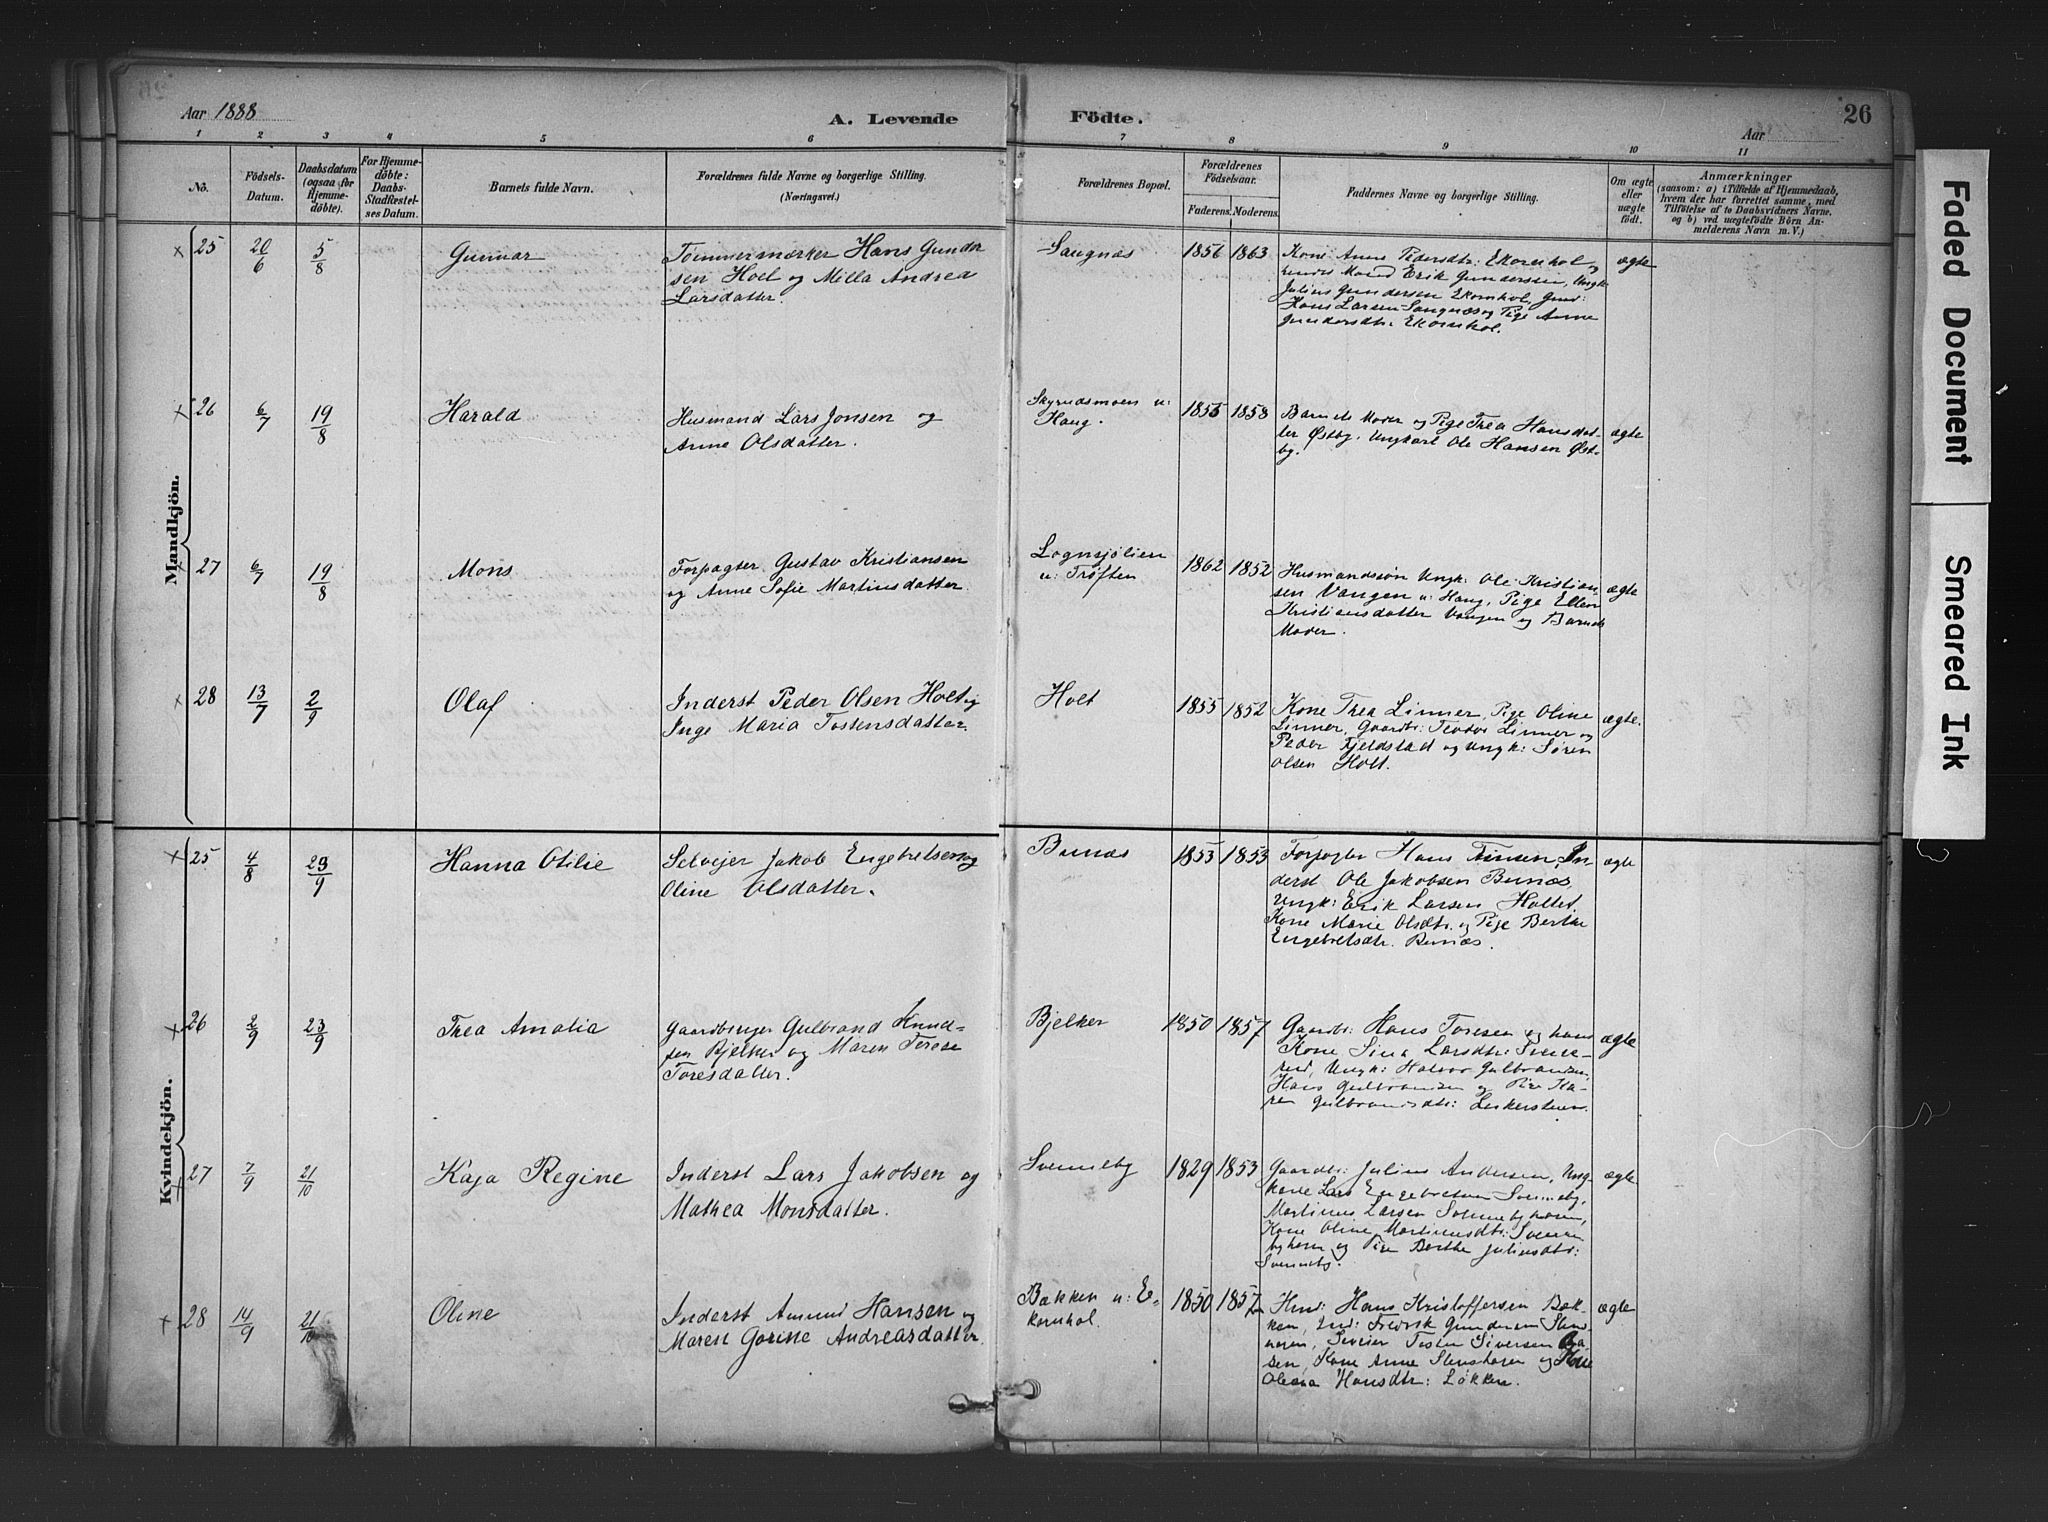 Aar 1888
A. Levende
Födte.
Aar
26
1 2 3 4 5 6 7 8 9 10 11
No.
Födsels-
Datum.
Daabsdatum
(ogsaa for
Hjemme-
döbte).
For Hjemme-
döbte:
Daabs-
Stadfæstel-
ses Datum.
Barnets fulde Navn.
Forældrenes fulde Navne og borgerlige Stilling.
(Næringsvei.)
Forældrenes Bopæl.
Forældrenes
Födselsaar.
Faderens. Moderens.
Faddernes Navne og borgerlige Stilling.
Om ægte
eller
uægte
födt.
Anmærkninger
(saasom: a) i Tilfælde af Hjemmedaab,
hvem der har forrettet samme, med
Tilföielse af to Daabsvidners Navne,
og b) ved uægtefödte Börn An-
melderens Navn m. V.)
Mandkjön.
× 25 20/6 5/8 Gunnar
Tømmermærker Hans Gunder
sen Hoel og Milla Andrea
Larsdatter.
Saugnæs 1856 1863
Kone Anne Pedersdtr: Ekornhol og
hendes Mand Erik Gundersen, Ungk:
Julius Gundersen Ekornhol,
Hans Larsen Saugnæs og Pige Anne
Gundersdtr: Ekornhol.
ægte
× 26 6/7 19/8 Harald
Husmand Lars Jonsen og
Anne Olsdatter.
Skyrudsmoen u:
Haug.
1855 1858
Barnets Moder og Pige Thea Hansdat-
ter Østby, Ungkarl Ole Hansen Øst-
by.
ægte
× 27 6/7 19/8 Mons
Forpagter Gustav Kristiansen
og Anne Sofie Martinusdatter.
Lognsjølien
u: Trøften
1862 1852
Husmandssøn Ungk: Ole Kristian-
sen Vangen u: Haug, Pige Ellen
Kristiansdatter Vangen og Barnets
Moder.
ægte
× 28 13/7 2/9 Olaf
Inderst Peder Olsen Holt og
Inge Maria Tostensdatter.
Holt 1855 1852
Kone Thea Linner, Pige Oline
Linner, Gaardbr: Teodor Linner og
Peder Fjeldstad og Ungk: Søren
Olsen Holt.
ægte.
Kvindekjön.
× 25 4/8 23/9 Hanna Otilie
Selvejer Jakob Engebretsen og
Oline Olsdatter.
Bunæs 1853 1853
Forpagter Hans Finsen, In-
derst Ole Jakobsen Bunæs,
Ungk: Erik Larsen Holtet,
Kone Marie Olsdtr. og Pige Berthe
Engebretsdtr. Bunæs.
ægte
× 26 2/9 23/9 Thea Amalia
Gaardbruger Gulbrand Knud-
sen Bjelker og Maren Terese
Toresdatter.
Bjelker 1850 1857
Gaardbr: Hans Toresen og hans
Kone Sina Larsdtr:
Ungk: Halvor Gulbrandsen,
Hans Gulbrandsen og Pige Ka-
ren Gulbrandsdtr:
ægte
× 27 7/9 21/10 Kaja Regine
Inderst Lars Jakobsen og
Mathea Monsdatter.
Svenneby 1829 1853
Gaardbr: Julius Andersen, Ung-
karle Lars Engebretsen Svenneby,
Martinus Larsen Svennebyhorn,
Kone Oline Martinusdtr: Svenne-
byhorn og Pige Berthe Juliusdtr:
Svenneby.
ægte
× 28 14/9 21/10 Oline
Inderst Amund Hansen og
Maren Gorine Andreasdatter.
Bækken u: E-
kornhol.
1850 1857
Hmd: Hans Kristoffersen Bæk-
ken, Ind: Fredrik Gundersen
Selveier Tosten Siversen
Kone Anne og Kone
Olena Hansdtr: Løkken.
ægte
Faded Document
Smeared Ink